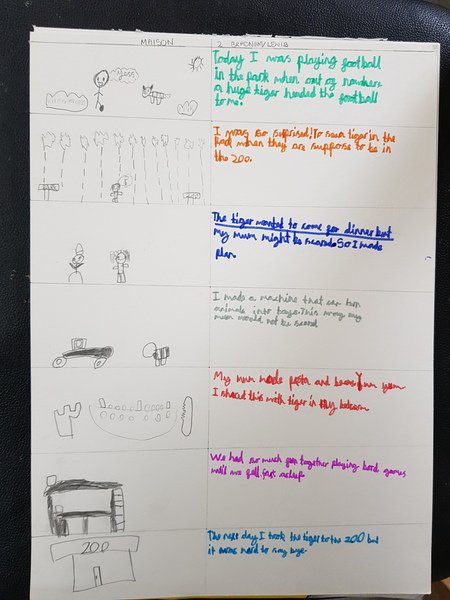 MAISON
Today I was playing football
in the park when out of nowhere
a huge tiger headed the football
to me.
I was so surprised! To see a tiger in the
Park when they are suppose to be in
the zoo.
The tiger wanted to come for dinner but
my mum might be scared. So I made
plan.
I made a machine that can turn
animals into toys. This way my
mum would not be scared
My mum made pasta and beans Yum yum
I shared this with tiger in my bedroom
We had so much fun together playing bord games
until we fell fast asleep
ZOO
The next day I took the tiger to the zoo but
it was hard to say bye.